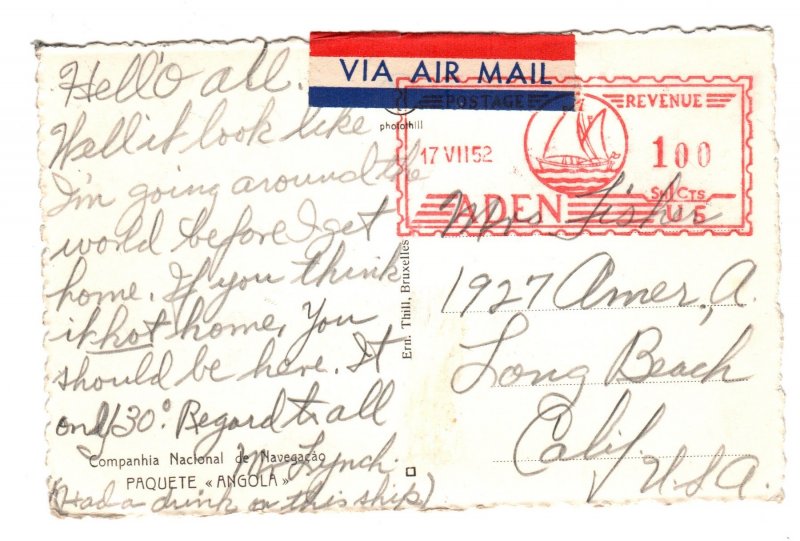 Hello all.
Well it look like
I'm going around the
world before I get
home. If you think
it hot home, You
should be here. It
only 130°. Regard to all
Mr Lynch.
Companhia Nacional de Navegação
PAQUETE « ANGOLA »
(Had a drink on this ship)
VIA AIR MAIL
photothill
POSTAGE REVENUE
17 VII 52
100
ADEN
Sh Cts
U 5
Ern. Thill, Bruxelles
Mrs Fisher
1927 Amer. A.
Long Beach
Calif.
U.S.A.